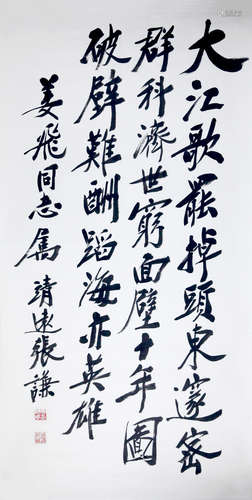 大江歌罷掉頭東邃密
群科濟世窮面壁十年圖
破壁難酬蹈海亦英雄
姜飛同志屬 靖遠張謙